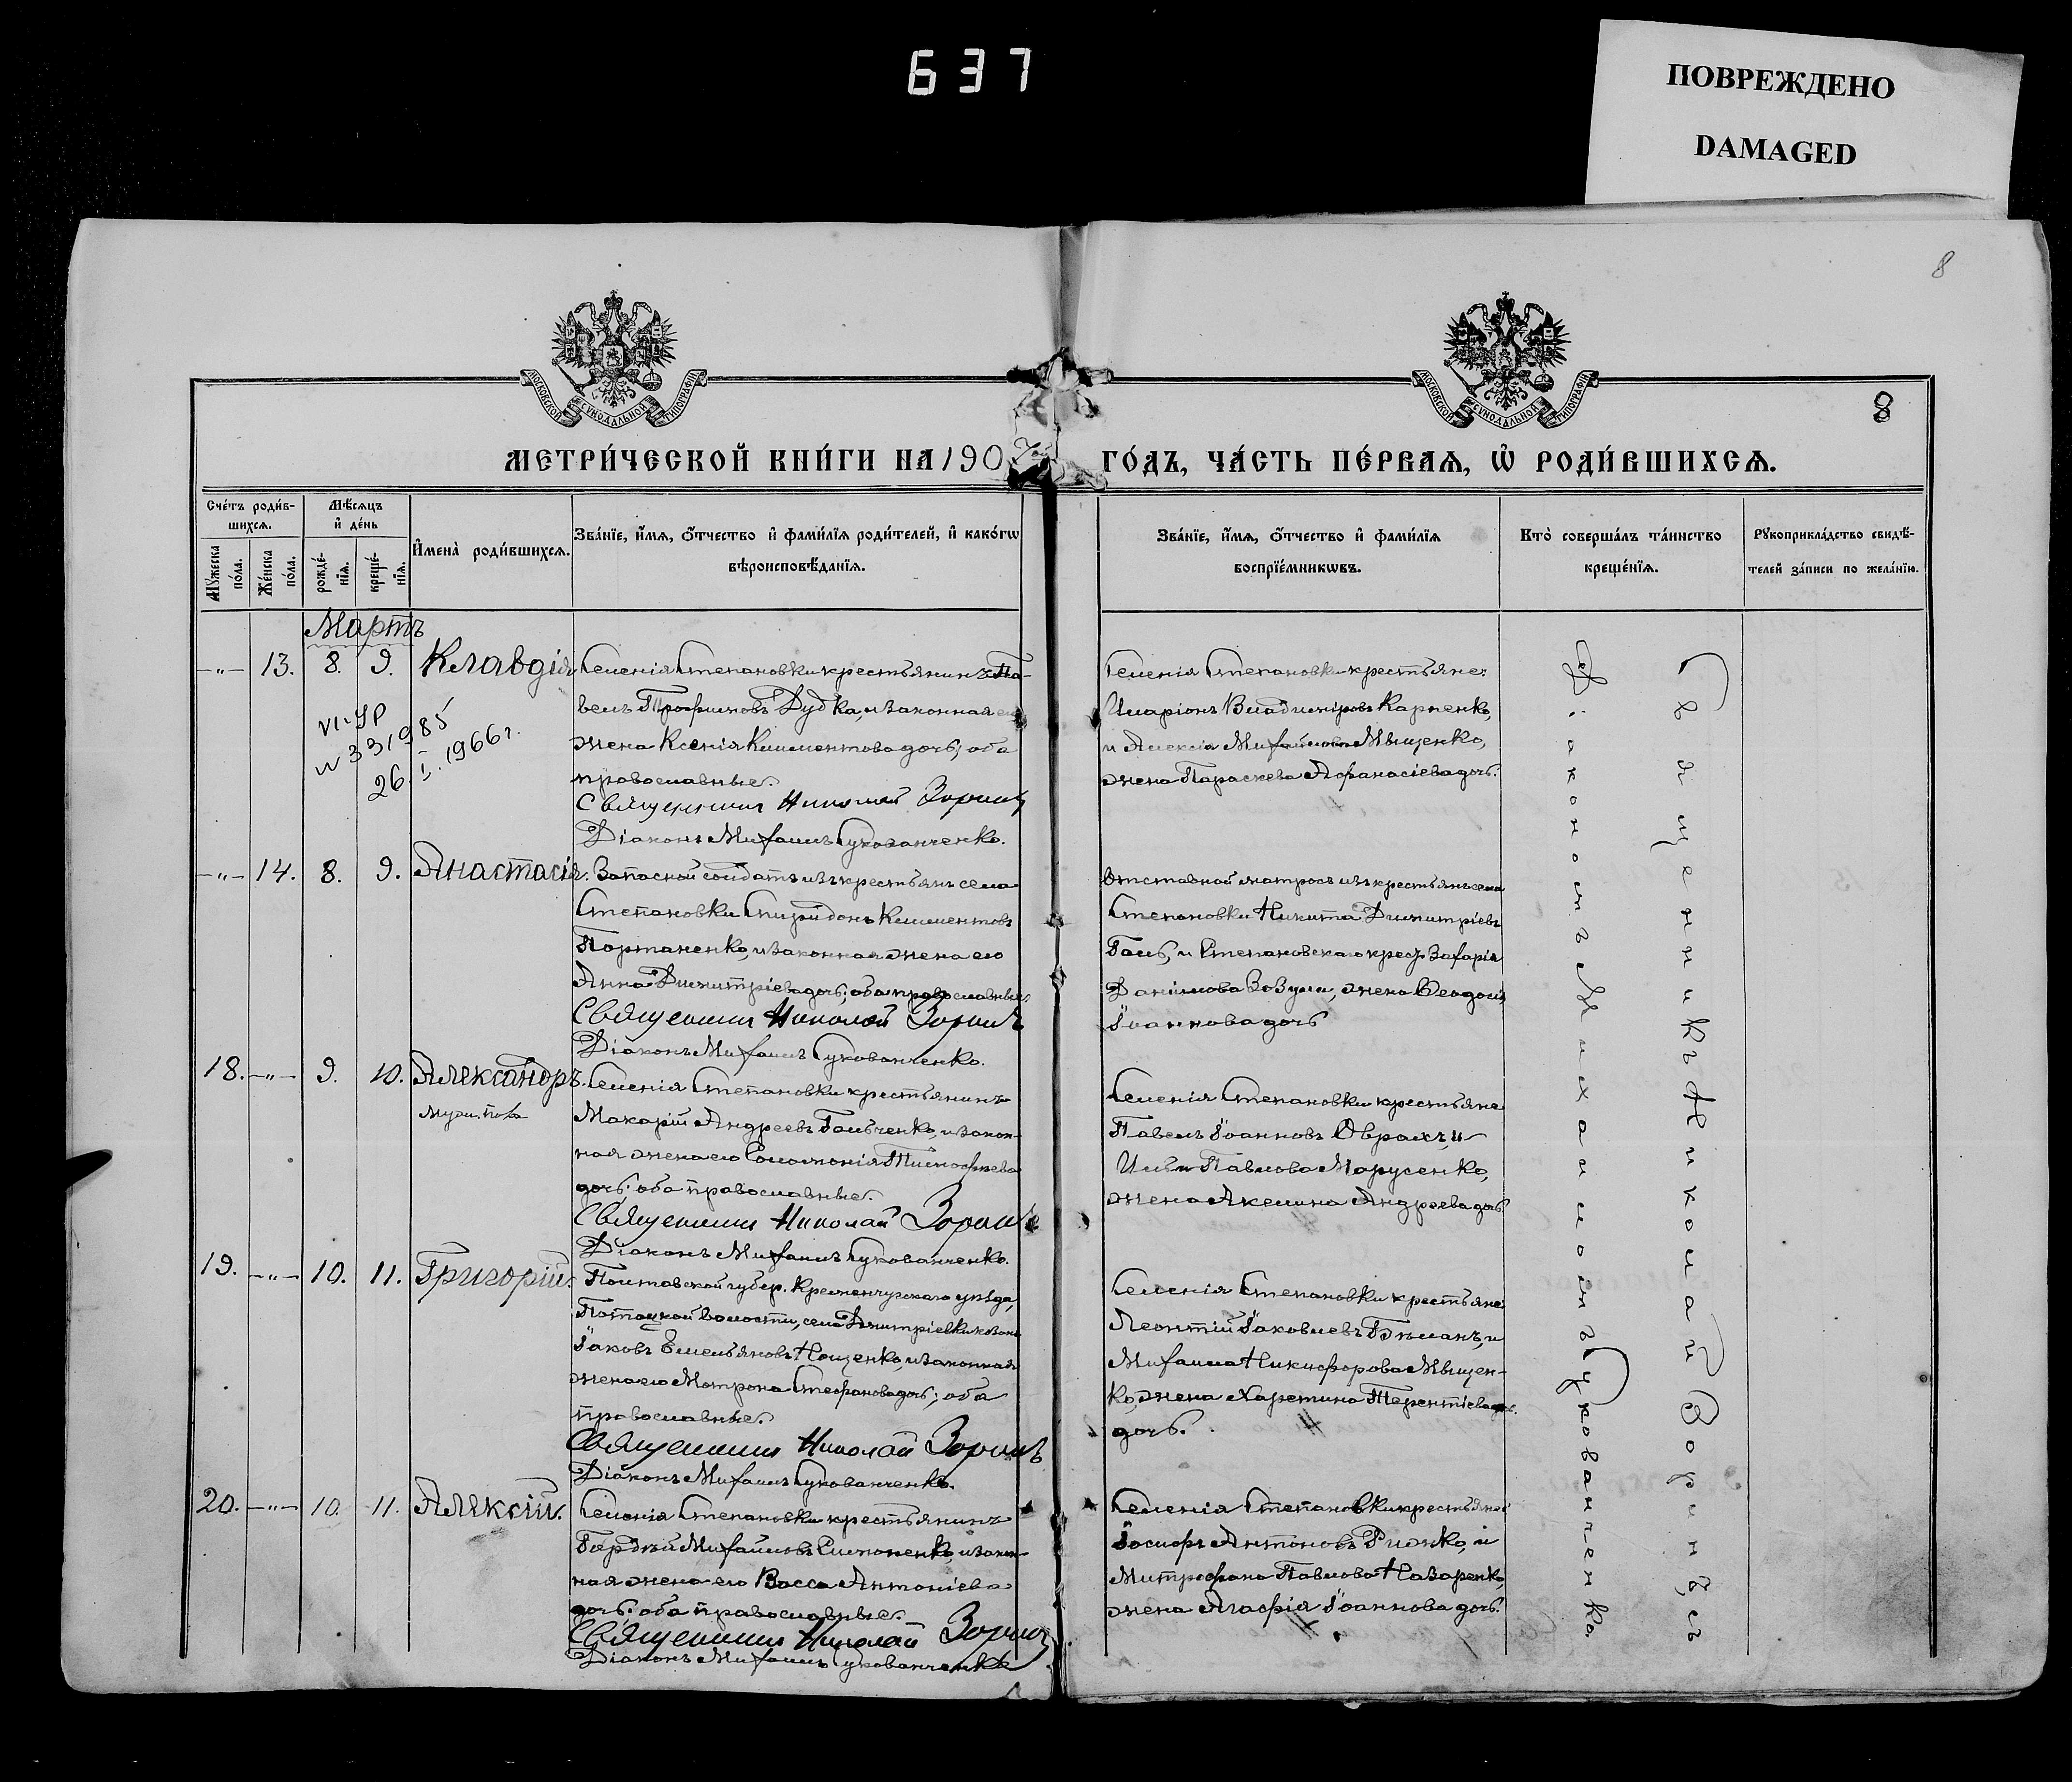 637
ПОВРЕЖДЕНО
DAMAGED
8
МОСКОВСКОЙ СѴНОДАЛЬНОЙ ТИПОГРАФІИ
МОСКОВСКОЙ СѴНОДАЛЬНОЙ ТИПОГРАФІИ
8
МЕТРИ́ЧЕСКОЙ КНИ́ГИ НА 1907
ГО́ДЪ, ЧА́СТЬ ПЕ́РВАѦ, Ѡ РОДИ́ВШИХСѦ.
Сче́тъ роди́в-
шихсѧ.
Мѣ́сѧцъ
и҆ де́нь
Мꙋ́жеска
по́ла.
Же́нска
по́ла.
рожде́-
нїѧ.
креще́-
нїѧ.
И҆мена̀ роди́вшихсѧ.
Зва́нїе, и҆́мѧ, ѻ҆́тчество и҆ фами́лїѧ роди́телей, и҆ како́гѡ
вѣроисповѣ́данїѧ.
Зва́нїе, и҆́мѧ, ѻ҆́тчество и҆ фами́лїѧ
воспрїе́мникѡвъ.
Кто̀ соверша́лъ та́инство
креще́нїѧ.
Рꙋкоприкла́дство свидѣ́-
телей за́писи по жела́нїю.
Мартъ
—„— 13. 8. 9. Клавдія
Селенія Степановки крестьянинъ Па-
велъ Трофимовъ Дудка, и законная его
жена Ксенія Климентова дочь; оба
православные.
Священникъ Николай Зоринъ
Діаконъ Михаилъ Цукованченко.
331985
26. I. 1966 г.
Селенія Степановки крестьяне:
Иларіонъ Владиміровъ Карпенко,
и Алексія Михайлова Мыщенко,
жена Параскева Афанасіева дочь.
—„— 14. 8. 9. Анастасія.
Запасной солдатъ изъ крестьянъ села
Степановки Спиридонъ Климентовъ
Портаненко, и законная жена его
Анна Димитріева дочь; оба православные.
Священникъ Николай Зоринъ
Діаконъ Михаилъ Цукованченко.
Отставной матросъ изъ крестьянъ села
Степановки Никита Димитріевъ
Голь, и Степановскаго крест. Захарія
Даніилова Зозули, жена Ѳеодосія
Іоаннова дочь
18. —„— 9. 10. Александръ.
муж. пола
Селенія Степановки крестьянинъ
Макарій Андреевъ Гальченко, и закон-
ная жена его Соломонія Тимофеева
дочь; оба православные.
Священникъ Николай Зоринъ
Діаконъ Михаилъ Цукованченко.
Селенія Степановки крестьяне
Павелъ Іоанновъ Оврахъ, и
Ильи Павлова Марусенко,
жена Акелина Андреева дочь
19. —„— 10. 11. Григорій.
Полтавской губер. Кременчугскаго уѣзда,
Потоцкой волости, села Димитріевки козакъ
Іаковъ Емельяновъ Нощенко, и законная
жена его Матрона Стефанова дочь; оба
православные.
Священникъ Николай Зоринъ
Діаконъ Михаилъ Цукованченко.
Селенія Степановки крестьяне
Леонтій Іаковлевъ Гѣманъ, и
Михаила Никифорова Мыщен-
ко, жена Харетина Терентіева
дочь.
20. —„— 10. 11. Алексій.
Селенія Степановки крестьянинъ
Гордѣй Михайловъ Симоненко, и закон-
ная жена его Васса Антоніева
дочь; оба православные.
Священникъ Николай Зоринъ
Діаконъ Михаилъ Цукованченко
Селенія Степановки крестьяне
Іосифъ Антоновъ Рижко, и
Митрофана Павлова Назаренко,
жена Агафія Іоаннова дочь.
Священникъ Николай Зоринъ
Діаконъ Михаилъ Цукованченко.